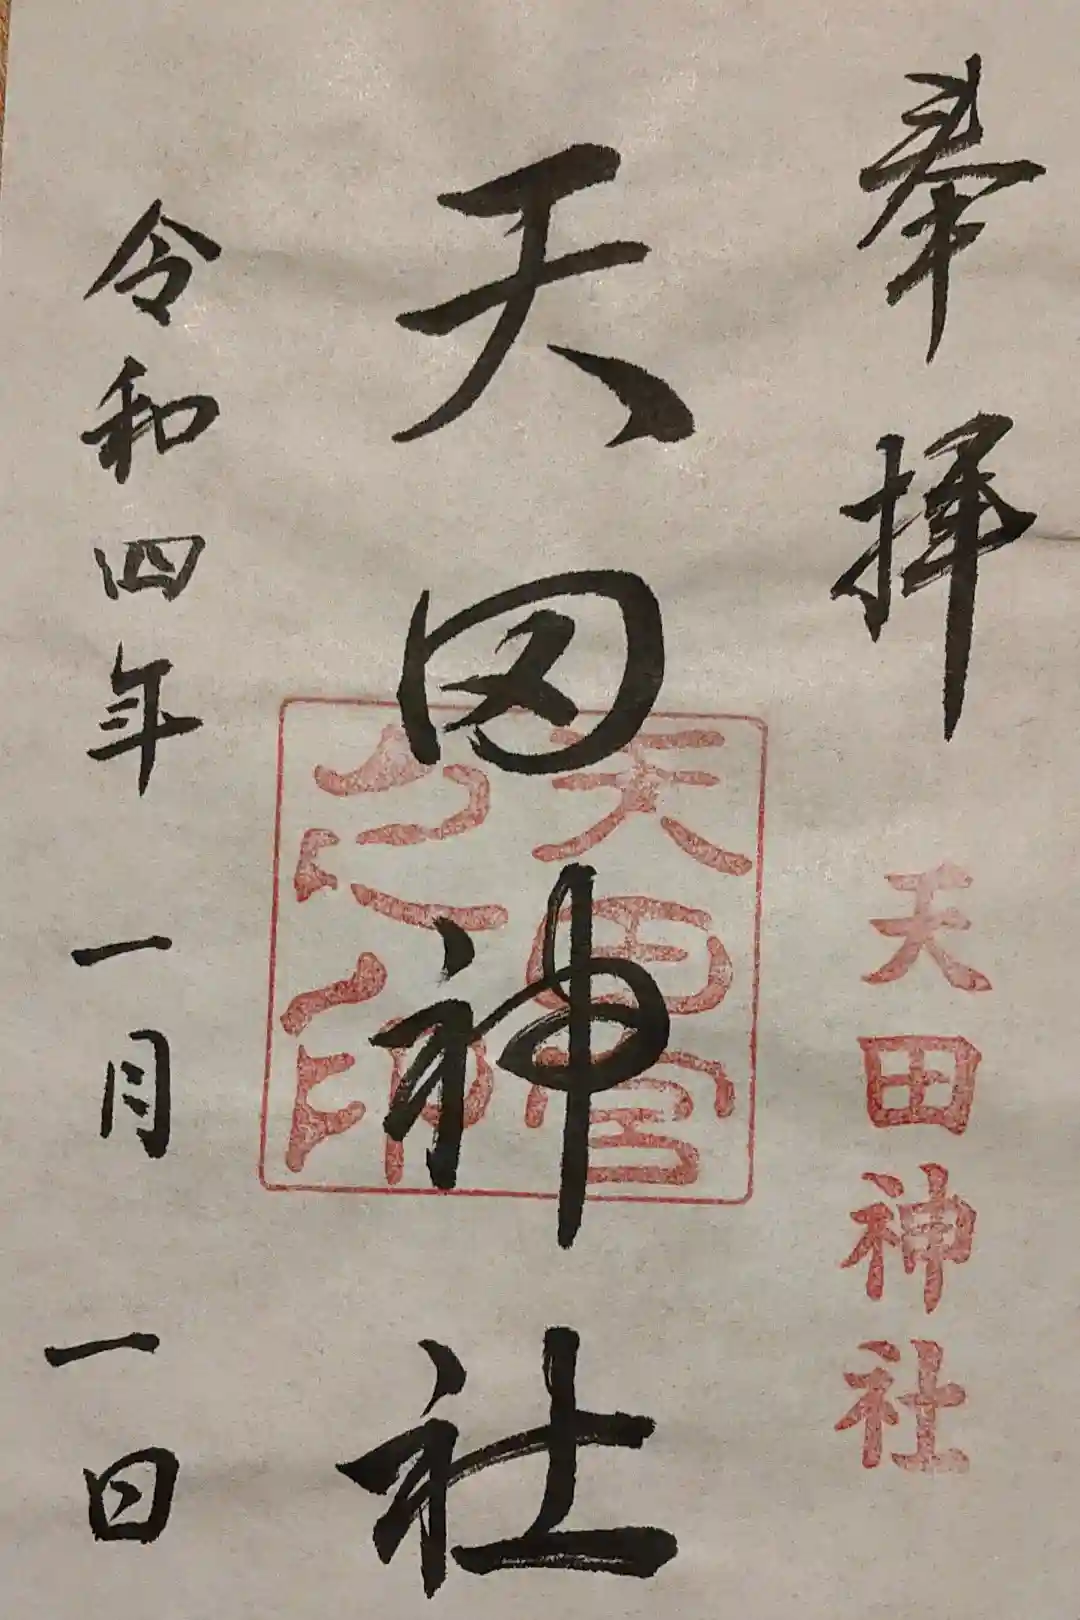 奉拝
天田神社
天田神社
天田宮之印
令和四年一月一日